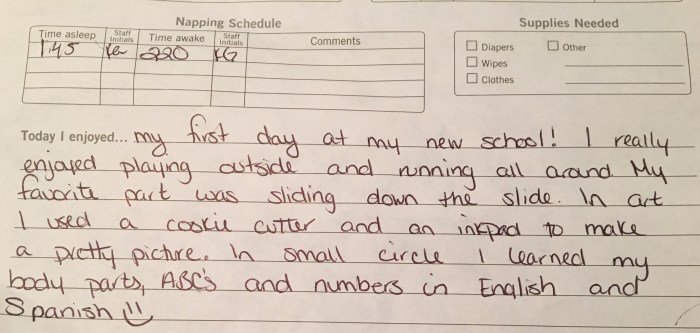 Napping Schedule
Time asleep Staff Initials Time awake Staff Initials Comments
1:45 220 KG
Supplies Needed
Diapers Other
Wipes
Clothes
Today I enjoyed... my first day at my new school! I really
enjoyed playing outside and running all around. My
favorite part was sliding down the slide. In art
I used a cookie cutter and an inkpad to make
a pretty picture. In small circle I learned my
body parts, ABC's and numbers in English and
Spanish